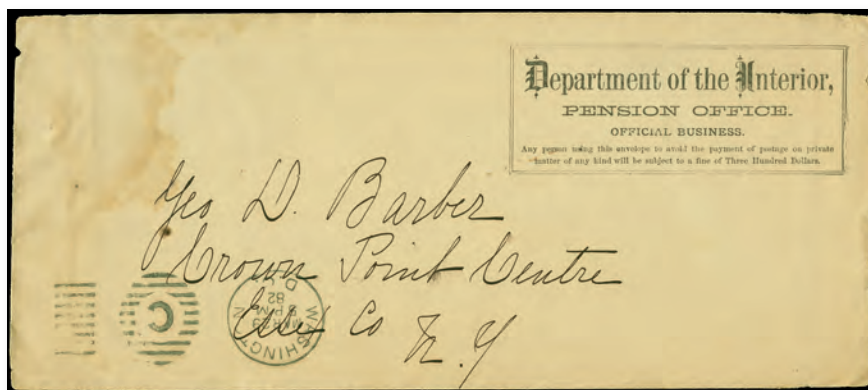 Department of the Interior,
PENSION OFFICE.
OFFICIAL BUSINESS.
Any person using this envelope to avoid the payment of postage on private
matter of any kind will be subject to a fine of Three Hundred Dollars.
Geo D. Barber
Crown Point Centre
Essex Co
N. Y
WASHINGTON
D.C.
MAR
5 PM
82
C